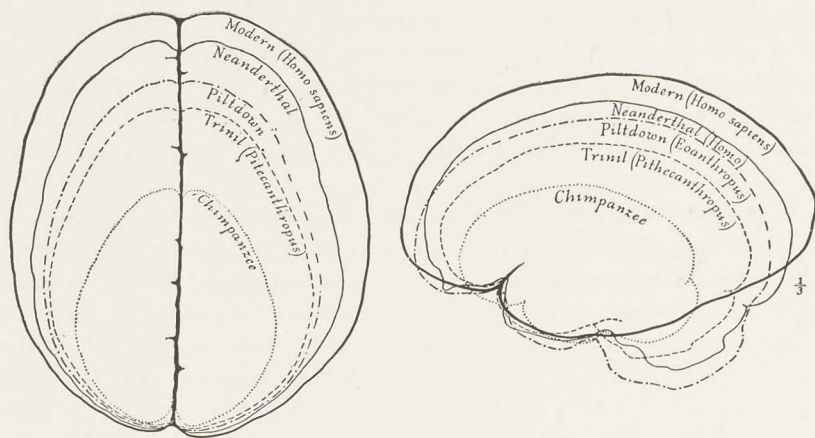 Modern (Homo sapiens)
Neanderthal
Piltdown
Trinil (Pitecanthropus)
Chimpanzee
Modern (Homo sapiens)
Neanderthal (Homo)
Piltdown (Eoanthropus)
Trinil (Pithecanthropus)
Chimpanzee
1/3